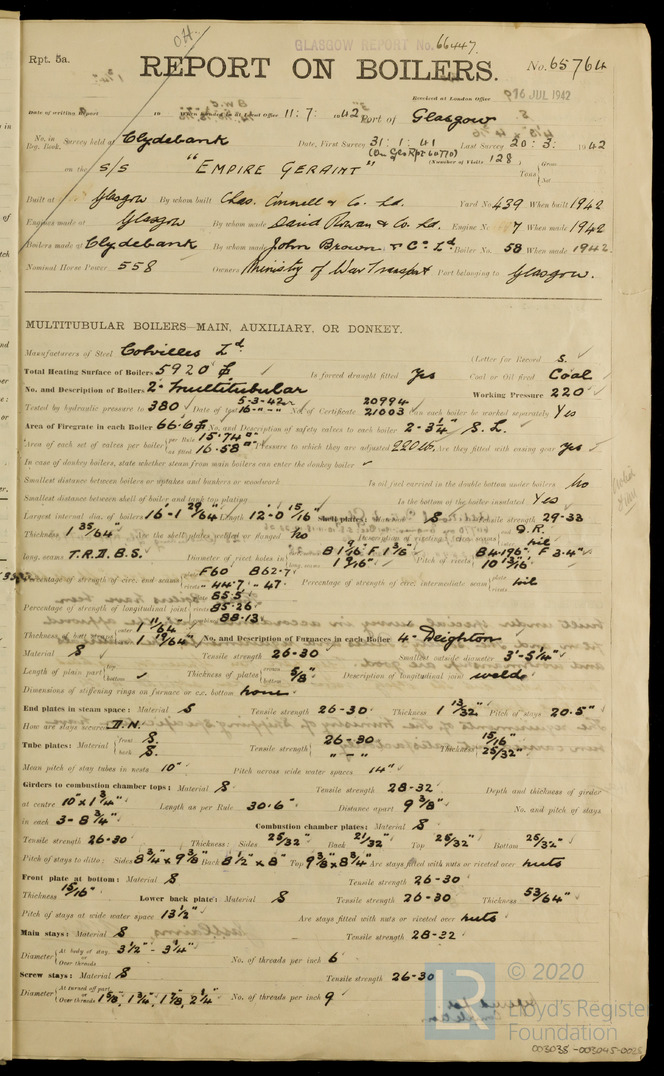 OH.
GLASGOW REPORT No. 66447.
Rpt. 5a.
REPORT ON BOILERS.
No. 65764
Received at London Office
16 JUL 1942
Date of writing Report 19 When handed in at Local Office 11.7.1942 Port of Glasgow
No. in Reg. Book. Survey held at Clydebank Date, First Survey 31.1.41 Last Survey 20.3.1942
(On Gls Rpt 60770) (Number of Visits 128)
on the S/S "EMPIRE GERAINT" Tons Gross Net
Built at Glasgow By whom built Chas. Connell & Co. Ld. Yard No. 439 When built 1942
Engines made at Glasgow By whom made David Rowan & Co. Ld. Engine No. 7 When made 1942
Boilers made at Clydebank By whom made John Brown & Co. Ld. Boiler No. 58 When made 1942
Nominal Horse Power 558 Owners Ministry of War Transport Port belonging to Glasgow.
MULTITUBULAR BOILERS—MAIN, AUXILIARY, OR DONKEY.
Manufacturers of Steel Colvilles Ld. (Letter for Record S.
Total Heating Surface of Boilers 5920 Is forced draught fitted Yes Coal or Oil fired Coal
No. and Description of Boilers 2- Multitubular Working Pressure 220
Tested by hydraulic pressure to 380 Date of test 5-3-42 16-"-" No. of Certificate 20994 21003 Can each boiler be worked separately Yes
Area of Firegrate in each Boiler 66.6 No. and Description of safety valves to each boiler 2-3¼" S.L.
Area of each set of valves per boiler per Rule 15.74 as fitted 16.58 Pressure to which they are adjusted 220 lb. Are they fitted with easing gear Yes
In case of donkey boilers, state whether steam from main boilers can enter the donkey boiler
Smallest distance between boilers or uptakes and bunkers or woodwork Is oil fuel carried in the double bottom under boilers No
Smallest distance between shell of boiler and tank top plating Is the bottom of the boiler insulated Yes
Largest internal dia. of boilers 16'-1 29/64" Length 12'-0 15/16" Shell plates: Material S Tensile strength 29-33
Thickness 1 35/64" Are the shell plates welded or flanged No D.R.
long. seams T.R.D.B.S. Diameter of rivet holes in Pitch of rivets
Percentage of strength of circ. end seams F60 B62.7 44.7 47 Percentage of strength of circ. intermediate seam Nil
Percentage of strength of longitudinal joint 85.5 85.26 88.13
Thickness of butt straps 1 11/64 1 19/64" No. and Description of Furnaces in each Boiler 4- Deighton
Material S Tensile strength 26-30 Smallest outside diameter 3'-5¼"
Length of plain part top bottom Thickness of plates crown bottom 5/8" Description of longitudinal joint weld
Dimensions of stiffening rings on furnace or c.c. bottom none
End plates in steam space: Material S Tensile strength 26-30 Thickness 1 13/32" Pitch of stays 20.5"
How are stays secured D.N.
Tube plates: Material front S. back S. Tensile strength 26-30 "-" Thickness 15/16" 25/32"
Mean pitch of stay tubes in nests 10" Pitch across wide water spaces 14"
Girders to combustion chamber tops: Material S Tensile strength 28-32 Depth and thickness of girder
at centre 10" x 1¾" Length as per Rule 30.6" Distance apart 9⅜" No. and pitch of stays
in each 3-8¾" Combustion chamber plates: Material S
Tensile strength 26-30 Thickness: Sides 25/32" Back 21/32" Top 25/32" Bottom 25/32"
Pitch of stays to ditto: Sides 8¾" x 9⅜" Back 8½" x 8" Top 9⅜" x 8¾" Are stays fitted with nuts or riveted over nuts
Front plate at bottom: Material S Tensile strength 26-30
Thickness 15/16" Lower back plate: Material S Tensile strength 26-30 Thickness 53/64"
Pitch of stays at wide water space 13½" Are stays fitted with nuts or riveted over nuts
Main stays: Material S Tensile strength 28-32
Diameter At body of stay, or Over threads 3½" - 3¼" No. of threads per inch 6
Screw stays: Material S Tensile strength 26-30
Diameter At turned off part, or Over threads 1⅝", 1¾", 1⅞", 2¼" No. of threads per inch 9
© 2020
LR Lloyd's Register
Foundation
003038-003045-0028